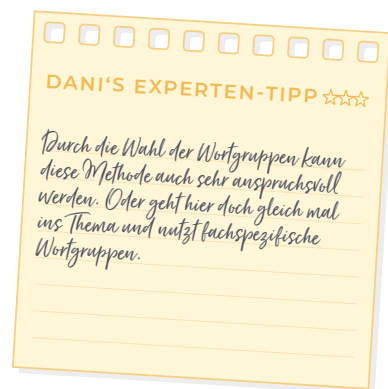 DANI'S EXPERTEN-TIPP
Durch die Wahl der Wortgruppen kann
diese Methode auch sehr anspruchsvoll
werden. Oder geht hier doch gleich mal
ins Thema und nutzt fachspezifische
Wortgruppen.